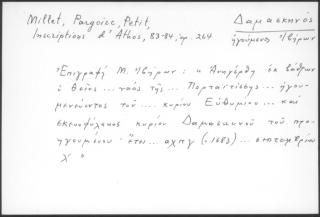 Millet, Pargoire, Petit,
Δαμασκηνός
Inscriptions d'Athos, 83-84, ἀρ. 264
ἡγούμενος Ἰβήρων
Ἐπιγραφή Μ. Ἰβήρων: « Ἀνηγέρθη ἐκ βάθρων
ὁ θεῖος ... ναός τῆς ... Πορταϊτίσσης ... ἡγου-
μενεύοντος τοῦ ... κυρίου Εὐθυμίου ... καί
σκευοφύλακος κυρίου Δαμασκηνοῦ τοῦ προ-
ηγουμένου· ἔτει ... αχπγ (=1683) ... σεπτεμβρίου